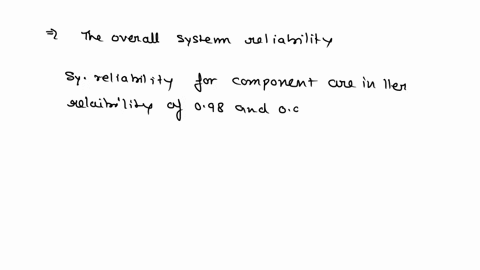 ⇒ The overall system reliability
Sy. reliability for component are in ller
relaibility of 0.98 and 0.9